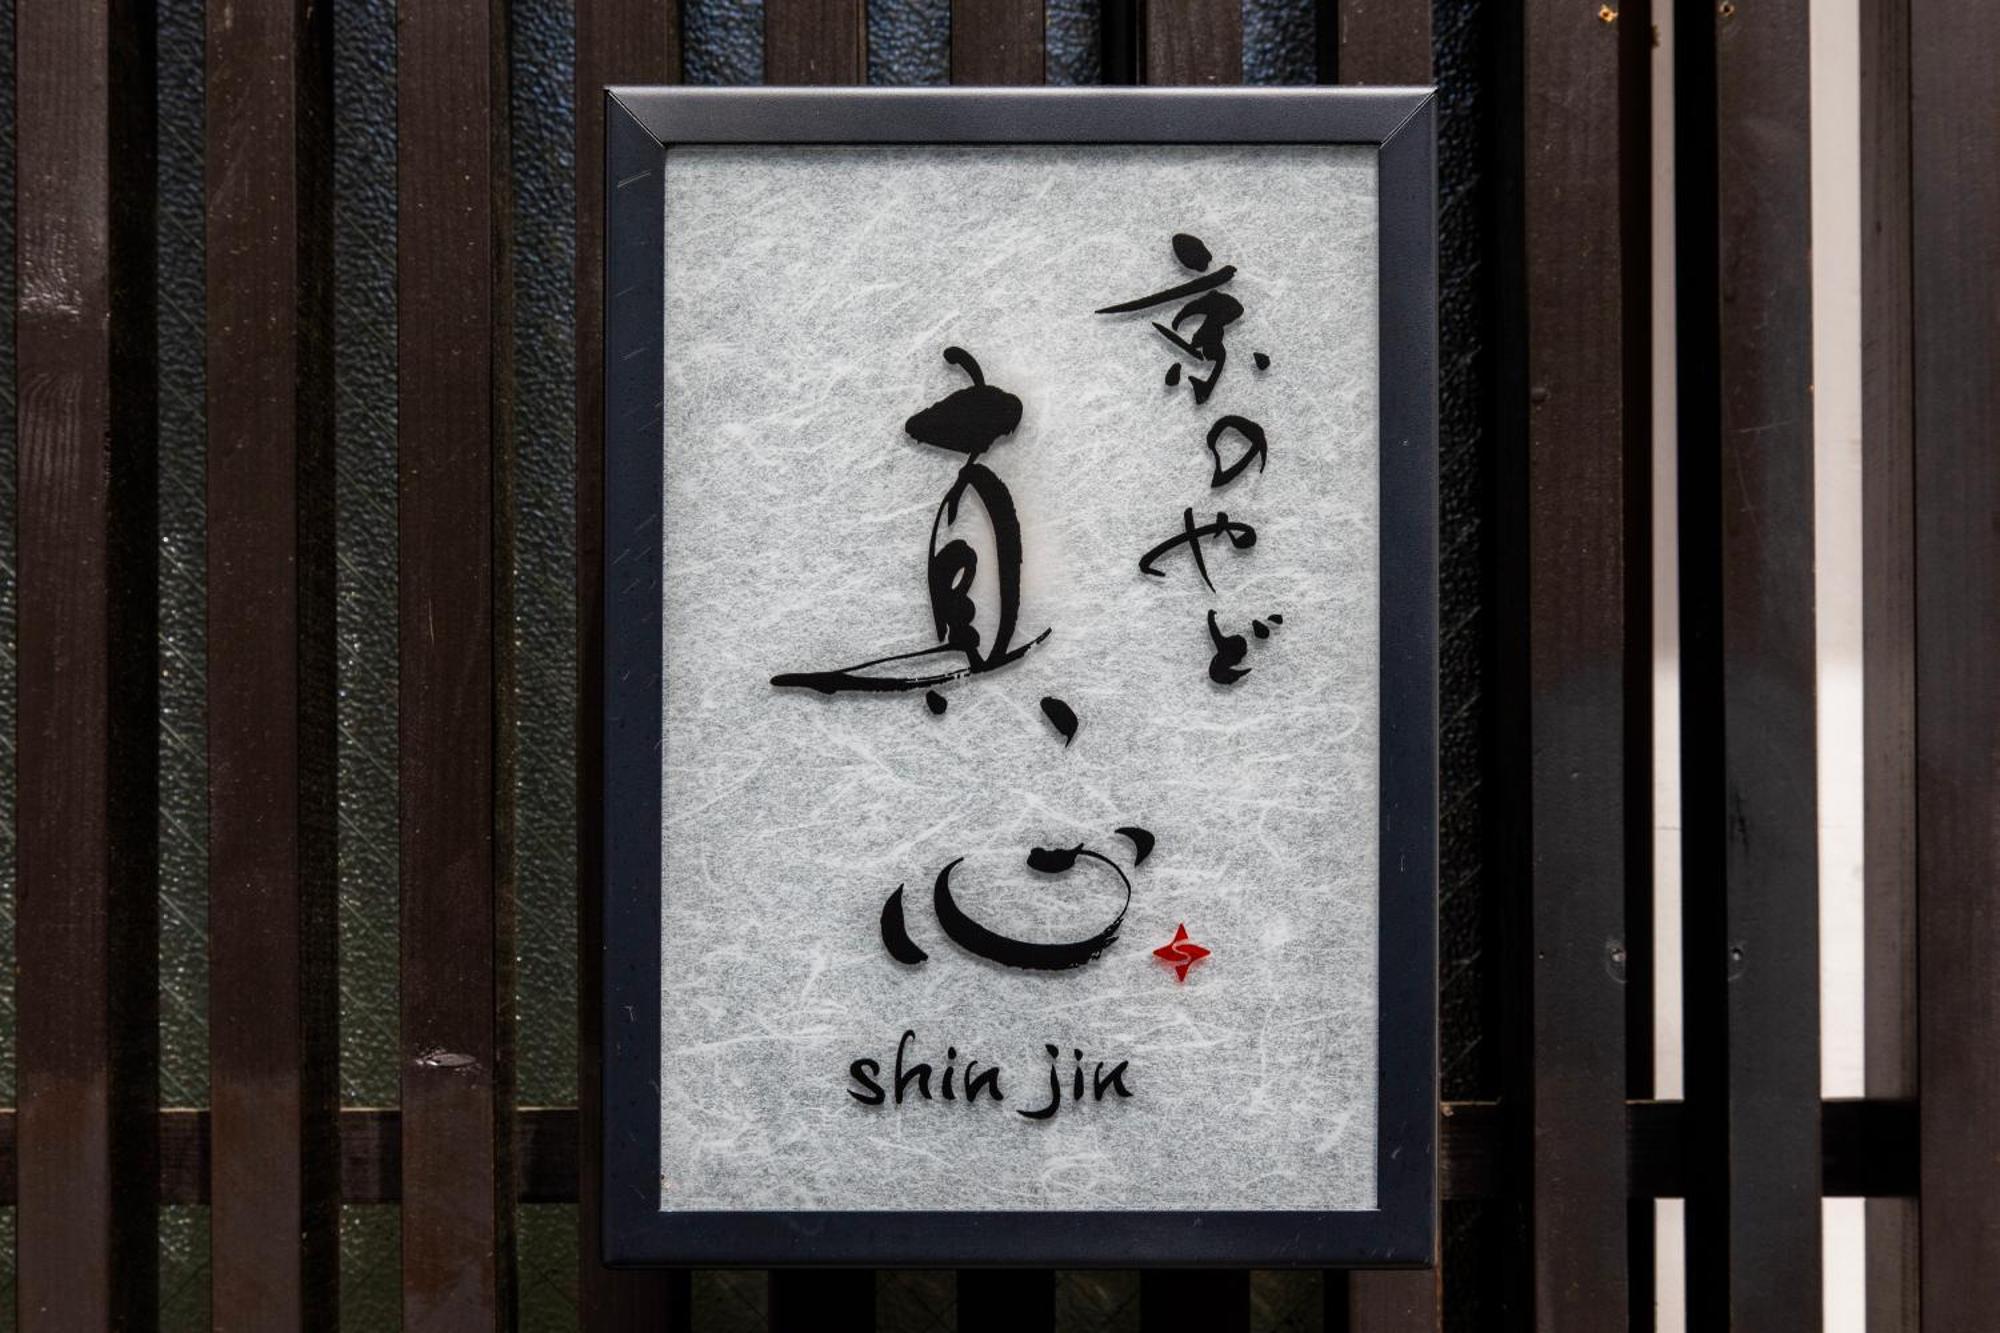 京のやど
真心
shin jin
S